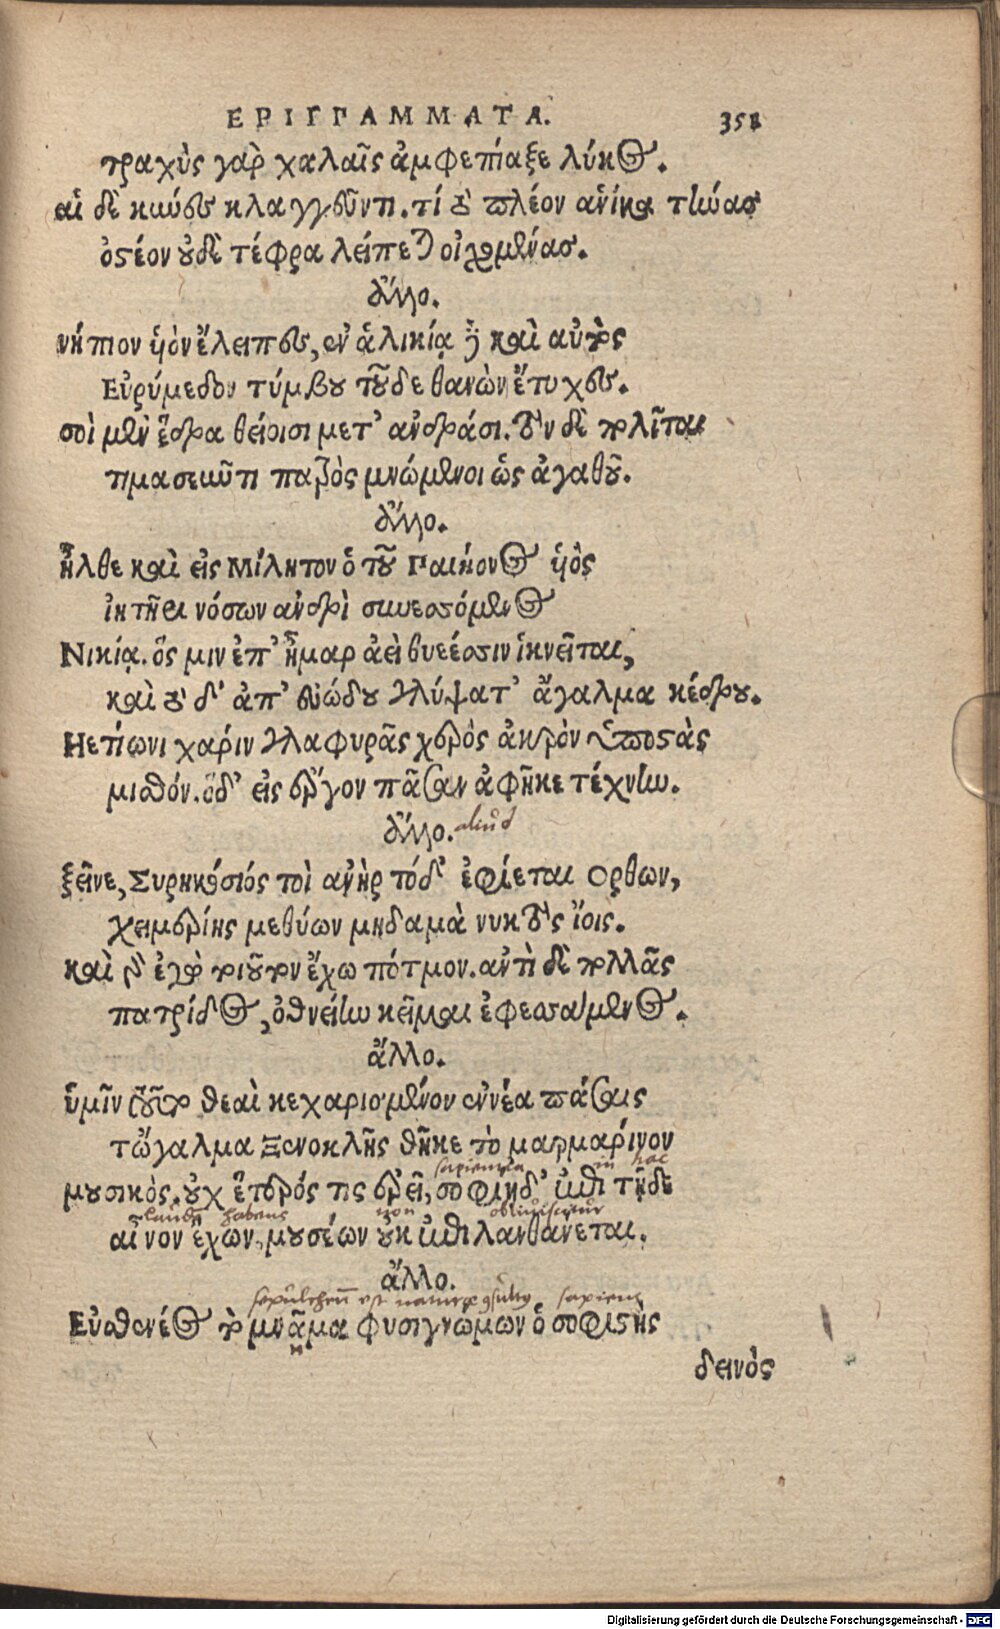 ΕΡΙΓΡΑΜΜΑΤΑ. 351
τραχὺς γαρ χαλαῖς ἀμφεπίαξε λύκος.
αἱ δὲ κύνες κλαγγεῦντι. τί οὐ πλέον ἁνίκα τήνας
ὀστέον οὐδὲ τέφρα λείπεται οἰχομένας.
ἄλλο.
νήπιον ὑὸν ἔλειπες, ἐν ἁλικίᾳ δὲ καὶ αὐτὸς
Εὐρύμεδον τύμβου τοῦδε θανὼν ἔτυχες.
σοὶ μὲν ἕδρα θείοισι μετ' ἀνδράσι. τὸν δὲ πολῖται
τιμασεῦντι πατρὸς μνώμενοι ὡς ἀγαθοῦ.
ἄλλο.
ἦλθε καὶ εἰς Μίλητον ὁ τοῦ Παιήονος ὑὸς
ἰητῆρι νόσων ἀνδρὶ συνεσσόμενος
Νικίᾳ. ὅς μιν ἐπ' ἦμαρ ἀεὶ θυέεσσιν ἱκνεῖται,
καὶ τοῦ δ' ἀπ' εὐώδου γλύψατ' ἄγαλμα κέδρου.
Ηετίωνι χαρίν γλαφυρᾶς χερὸς ἀκρὸν ὑποστὰς
μισθόν. ὁδ' εἰς ἔργον πᾶσαν ἀφῆκε τέχνην.
ἄλλο. aliud
ξεῖνε, Συρηκόσιός τοὶ ἀνὴρ τόδ' ἐφίεται Ορθων,
χειμερίης μεθύων μηδαμὰ νυκτὸς ἴοις.
καὶ γὰρ ἐγὼ τοιοῦτον ἔχω πότμον. ἀντὶ δὲ πολλᾶς
πατρίδος, ὀθνείην κεῖμαι ἐφεσσάμενος.
ἄλλο.
ὑμῖν τοῦτο θεαὶ κεχαρισμένον ἐννέα πάσαις
τὤγαλμα Ξενοκλῆς θῆκε τὸ μαρμαρίνον
sapientia in hac
μουσικὸς. οὐχ ἕτερός τις ἐρεῖ, σοφίηδ' ἐπὶ τῇδε
laudē habens non obliuiscitur
αἶνον ἔχων, μουσέων οὐκ ἐπιλανθάνεται.
ἄλλο.
sepulchrū est naturae cōsultus sapiens
Εὐσθενέος τὸ μνᾶμα φυσιγνώμων ὁ σοφιστὴς
η
δεινὸς
Digitalisierung gefördert durch die Deutsche Forschungsgemeinschaft - DFG